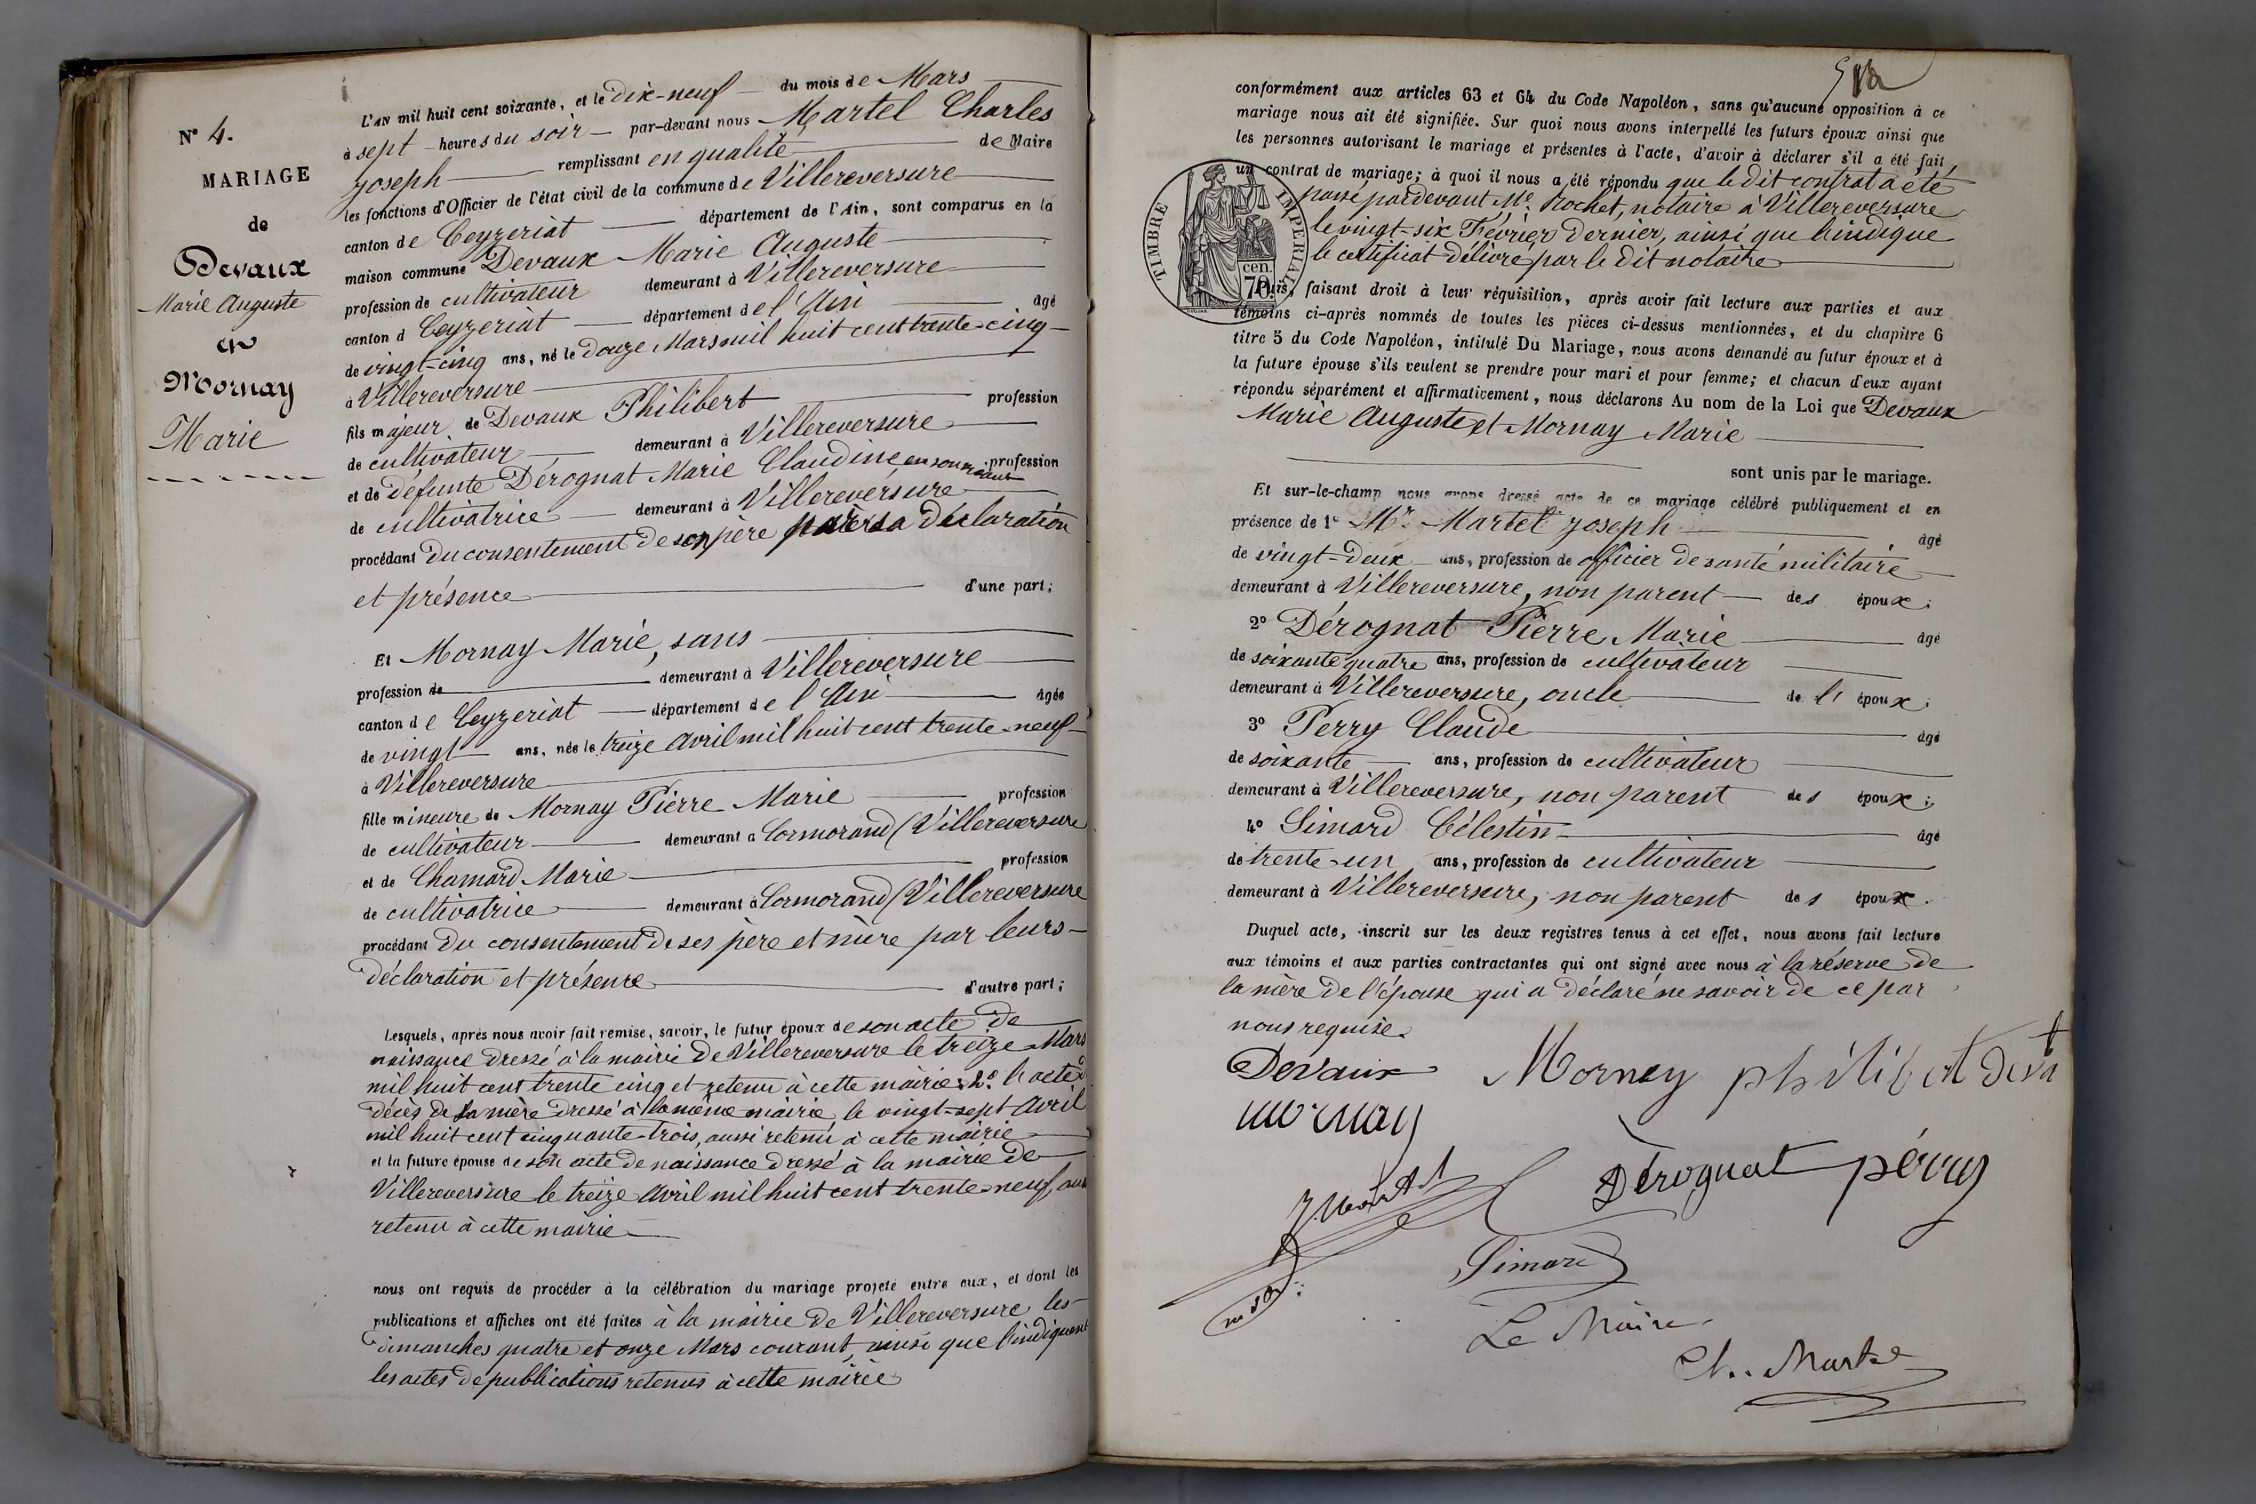 N° 4.
MARIAGE
de
Devaux
Marie Auguste
et
Mornay
Marie
L'AN mil huit cent soixante, et le Dix-neuf du mois de Mars
à sept heures du soir par-devant nous Martel Charles
Joseph remplissant en qualité de Maire
les fonctions d'Officier de l'état civil de la commune de Villereversure
canton de Ceyzeriat département de l'Ain, sont comparus en la
maison commune Devaux Marie Auguste
profession de cultivateur demeurant à Villereversure
canton d Ceyzeriat département de l'Ain âgé
de vingt-cinq ans, né le douze Mars mil huit cent trente-cinq
à Villereversure
fils majeur de Devaux Philibert profession
de cultivateur demeurant à Villereversure
et de défunte Dérognat Marie Claudine, en son vivant profession
de cultivatrice demeurant à Villereversure
procédant du consentement de son père par sa déclaration
et présence d'une part;
Et Mornay Marie, sans
profession de demeurant à Villereversure
canton de Ceyzeriat département de l'Ain âgée
de vingt ans, née le treize avril mil huit cent trente-neuf
à Villereversure
fille mineure de Mornay Pierre Marie profession
de cultivateur demeurant à Cormorand (Villereversure
et de Chamard Marie profession
de cultivatrice demeurant à Cormorand (Villereversure
procédant du consentement de ses père et mère par leurs
déclaration et présence d'autre part;
Lesquels, après nous avoir fait remise, savoir, le futur époux de son acte de
naissance dressé à la mairie de Villereversure le treize Mars
mil huit cent trente cinq et retenu à cette mairie 2° l'acte de
décès de sa mère dressé à la même mairie, le vingt-sept avril
mil huit cent cinquante-trois, aussi retenu à cette mairie
et la future épouse de son acte de naissance dressé à la mairie de
Villereversure le treize avril mil huit cent trente-neuf, aussi
retenu à cette mairie
nous ont requis de procéder à la célébration du mariage projeté entre eux, et dont les
publications et affiches ont été faites à la mairie de Villereversure les
dimanches quatre et onze Mars courant, ainsi que l'indiquent
les actes de publications retenus à cette mairie
conformément aux articles 63 et 64 du Code Napoléon, sans qu'aucune opposition à ce
mariage nous ait été signifiée. Sur quoi nous avons interpellé les futurs époux ainsi que
les personnes autorisant le mariage et présentes à l'acte, d'avoir à déclarer s'il a été fait
un contrat de mariage; à quoi il nous a été répondu que le dit contrat a été
passé pardevant Me Rochet, notaire à Villereversure
le vingt-six Février dernier, ainsi que l'indique
le certificat délivré par le dit notaire
TIMBRE IMPERIAL
cen.
70
Puis, faisant droit à leur réquisition, après avoir fait lecture aux parties et aux
témoins ci-après nommés de toutes les pièces ci-dessus mentionnées, et du chapitre 6
titre 5 du Code Napoléon, intitulé Du Mariage, nous avons demandé au futur époux et à
la future épouse s'ils veulent se prendre pour mari et pour femme; et chacun d'eux ayant
répondu séparément et affirmativement, nous déclarons Au nom de la Loi que Devaux
Marie Auguste et Mornay Marie
sont unis par le mariage.
Et sur-le-champ nous avons dressé acte de ce mariage célébré publiquement et en
présence de 1° Mr. Martel Joseph âgé
de vingt-deux ans, profession de officier de santé militaire
demeurant à Villereversure, non parent des époux;
2° Dérognat Pierre Marie âgé
de soixante quatre ans, profession de cultivateur
demeurant à Villereversure, oncle de l' époux;
3° Perry Claude âgé
de soixante ans, profession de cultivateur
demeurant à Villereversure, non parent des époux;
4° Simard Célestin âgé
de trente-un ans, profession de cultivateur
demeurant à Villereversure, non parent des époux.
Duquel acte, inscrit sur les deux registres tenus à cet effet, nous avons fait lecture
aux témoins et aux parties contractantes qui ont signé avec nous à la réserve de
la mère de l'épouse qui a déclaré ne savoir de ce par
nous requise.
Devaux Mornay philibert deva
mornay
Dérognat pérry
J Martel
Simard
Le Maire
Ch. Martel